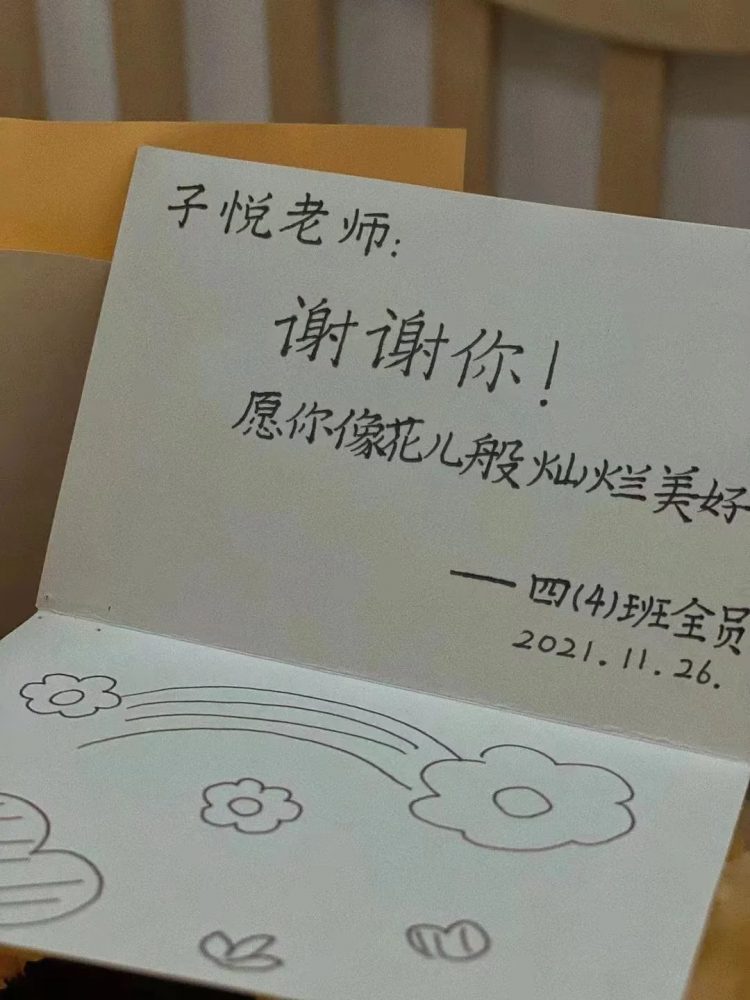 子悦老师:
谢谢你!
愿你像花儿般灿烂美好
——四(4)班全员
2021.11.26.